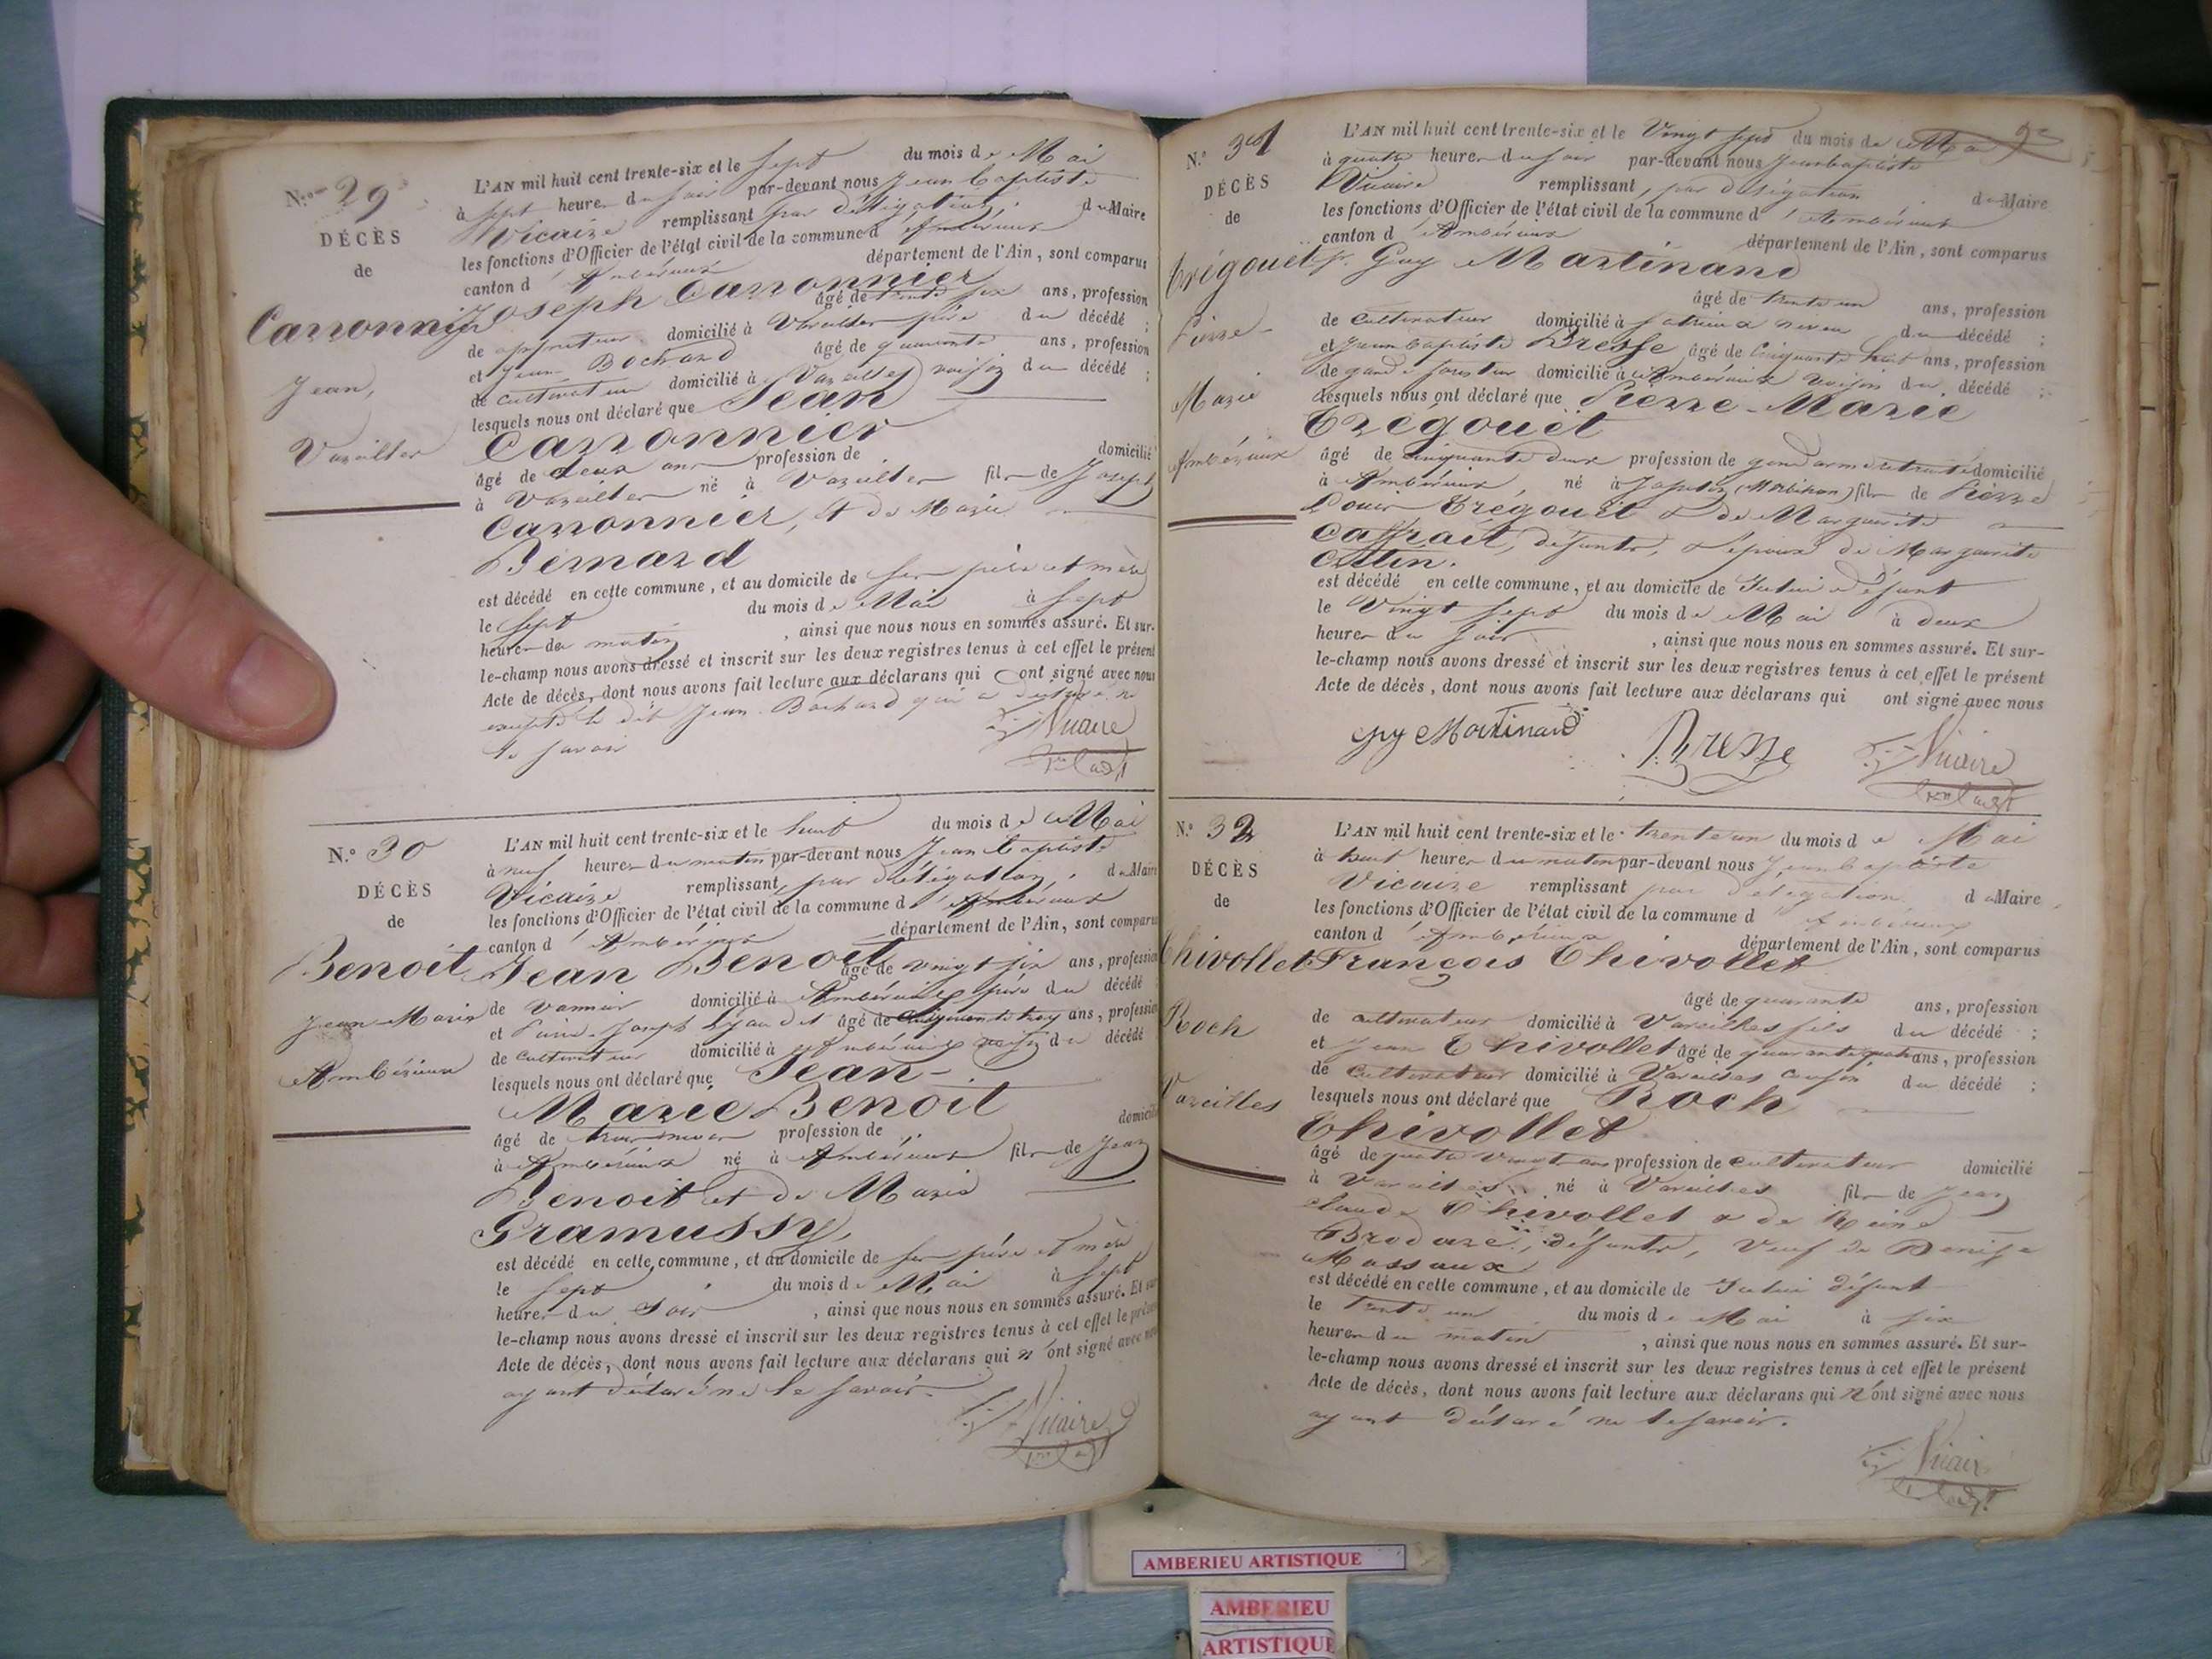 N.º 29
DÉCÈS
de
Carronnier
Jean,
Vareilles
L'AN mil huit cent trente-six et le sept du mois de Mai
à sept heures du soir par-devant nous Jean Baptiste
Vicaire remplissant par délégation, du Maire
les fonctions d'Officier de l'état civil de la commune d'Ambérieux
canton d'Ambérieux département de l'Ain, sont comparus
Joseph Carronnier
âgé de trente six ans, profession
de domicilié à Vareilles père du décédé ;
et Jean Bochard âgé de quarante ans, profession
de cultivateur domicilié à Vareilles voisin du décédé ;
lesquels nous ont déclaré que Jean
Carronnier
âgé de deux ans profession de domicilié
à Vareilles né à Vareilles fils de Joseph
Carronnier, et de Marie
Bernard
est décédé en cette commune, et au domicile de ses père et mère
le sept du mois de Mai à sept
heures du matin, ainsi que nous nous en sommes assuré. Et sur-
le-champ nous avons dressé et inscrit sur les deux registres tenus à cet effet le présent
Acte de décès, dont nous avons fait lecture aux déclarans qui ont signé avec nous
excepté le dit Jean Bochard qui a déclaré ne
le savoir
Vicaire
N.º 30
DÉCÈS
de
Benoit
Jean Marie
Ambérieux
L'AN mil huit cent trente-six et le huit du mois de Mai
à neuf heures du matin par-devant nous Jean Baptiste
Vicaire remplissant par délégation, du Maire
les fonctions d'Officier de l'état civil de la commune d'Ambérieux
canton d'Ambérieux département de l'Ain, sont comparus
Jean Benoit
âgé de vingt six ans, profession
de domicilié à Ambérieux père du décédé
et Joseph âgé de ans, profession
de cultivateur domicilié à Ambérieux voisin du décédé
lesquels nous ont déclaré que Jean-
Marie Benoit
âgé de trois mois profession de domicilié
à Ambérieux né à Ambérieux fils de Jean
Benoit et de Marie
Gramussy,
est décédé en cette commune, et au domicile de ses père et mère
le sept du mois de Mai à sept
heures du soir, ainsi que nous nous en sommes assuré. Et sur-
le-champ nous avons dressé et inscrit sur les deux registres tenus à cet effet le présent
Acte de décès, dont nous avons fait lecture aux déclarans qui n'ont signé avec nous
ayant déclaré ne le savoir.
Vicaire
N.º 31
DÉCÈS
de
Trégouët
Pierre-
Marie
Ambérieux
L'AN mil huit cent trente-six et le Vingt sept du mois de Mai
à quatre heures du soir par-devant nous Jean baptiste
Vicaire remplissant, par délégation du Maire
les fonctions d'Officier de l'état civil de la commune d'Ambérieux
canton d'Ambérieux département de l'Ain, sont comparus
Guy Martinand
âgé de trente un ans, profession
de cultivateur domicilié à neveu du décédé ;
et Jean baptiste Bresse âgé de Cinquante huit ans, profession
de garde forestier domicilié à Ambérieux voisin du décédé ;
lesquels nous ont déclaré que Pierre-Marie
Trégouët
âgé de cinquante deux profession de gendarme retraité domicilié
à Ambérieux né à (Morbihan) fils de Pierre
Louis Trégouët & de Marguerite
défunts, & époux de Marguerite
est décédé en cette commune, et au domicile de défunt
le Vingt sept du mois de Mai à deux
heures du soir, ainsi que nous nous en sommes assuré. Et sur-
le-champ nous avons dressé et inscrit sur les deux registres tenus à cet effet le présent
Acte de décès, dont nous avons fait lecture aux déclarans qui ont signé avec nous
Guy Martinand Bresse Vicaire
N.º 32
DÉCÈS
de
Chivollet
Roch
Vareilles
L'AN mil huit cent trente-six et le trente un du mois de Mai
à huit heures du matin par-devant nous Jean baptiste
Vicaire remplissant par délégation du Maire
les fonctions d'Officier de l'état civil de la commune d'Ambérieux
canton d'Ambérieux département de l'Ain, sont comparus
François Chivollet
âgé de quarante ans, profession
de cultivateur domicilié à Vareilles fils du décédé ;
et Jean Chivollet âgé de quarante quatre ans, profession
de Cultivateur domicilié à Vareilles cousin du décédé ;
lesquels nous ont déclaré que Roch
Chivollet
âgé de quatre vingts ans profession de cultivateur domicilié
à Vareilles né à Vareilles fils de Jean
claude Chivollet & de Reine
défunts, Veuf de Denise
est décédé en cette commune, et au domicile de défunt
le Trente un du mois de Mai à six
heures du matin, ainsi que nous nous en sommes assuré. Et sur-
le-champ nous avons dressé et inscrit sur les deux registres tenus à cet effet le présent
Acte de décès, dont nous avons fait lecture aux déclarans qui n'ont signé avec nous
ayant déclaré ne le savoir.
Vicaire
AMBERIEU ARTISTIQUE
AMBERIEU
ARTISTIQUE